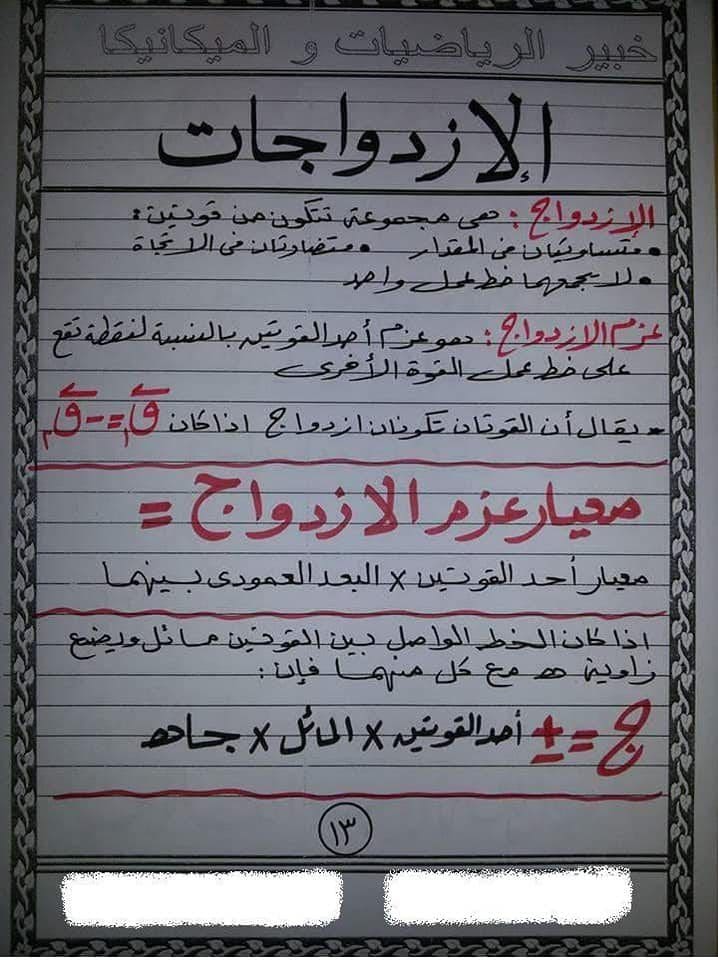 خبير الرياضيات و الميكانيكا
الإزدواجات
الإزدواج : هى مجموعة تتكون من قوتين :
• متساويتان فى المقدار • متضادتان فى الاتجاة
• لا يجمعهما خط عمل واحد
عزم الازدواج : هو عزم أحد القوتين بالنسبة لنقطة تقع
على خط عمل القوة الأخرى
• يقال أن القوتان تكونان ازدواج اذا كان ق١ = - ق٢
معيار عزم الازدواج =
معيار أحد القوتين × البعد العمودى بينهما
اذا كان الخط الواصل بين القوتين مائل ويصنع
زاوية هـ مع كل منهما فإن :
ج = ± أحد القوتين × المائل × جا هـ
١٣